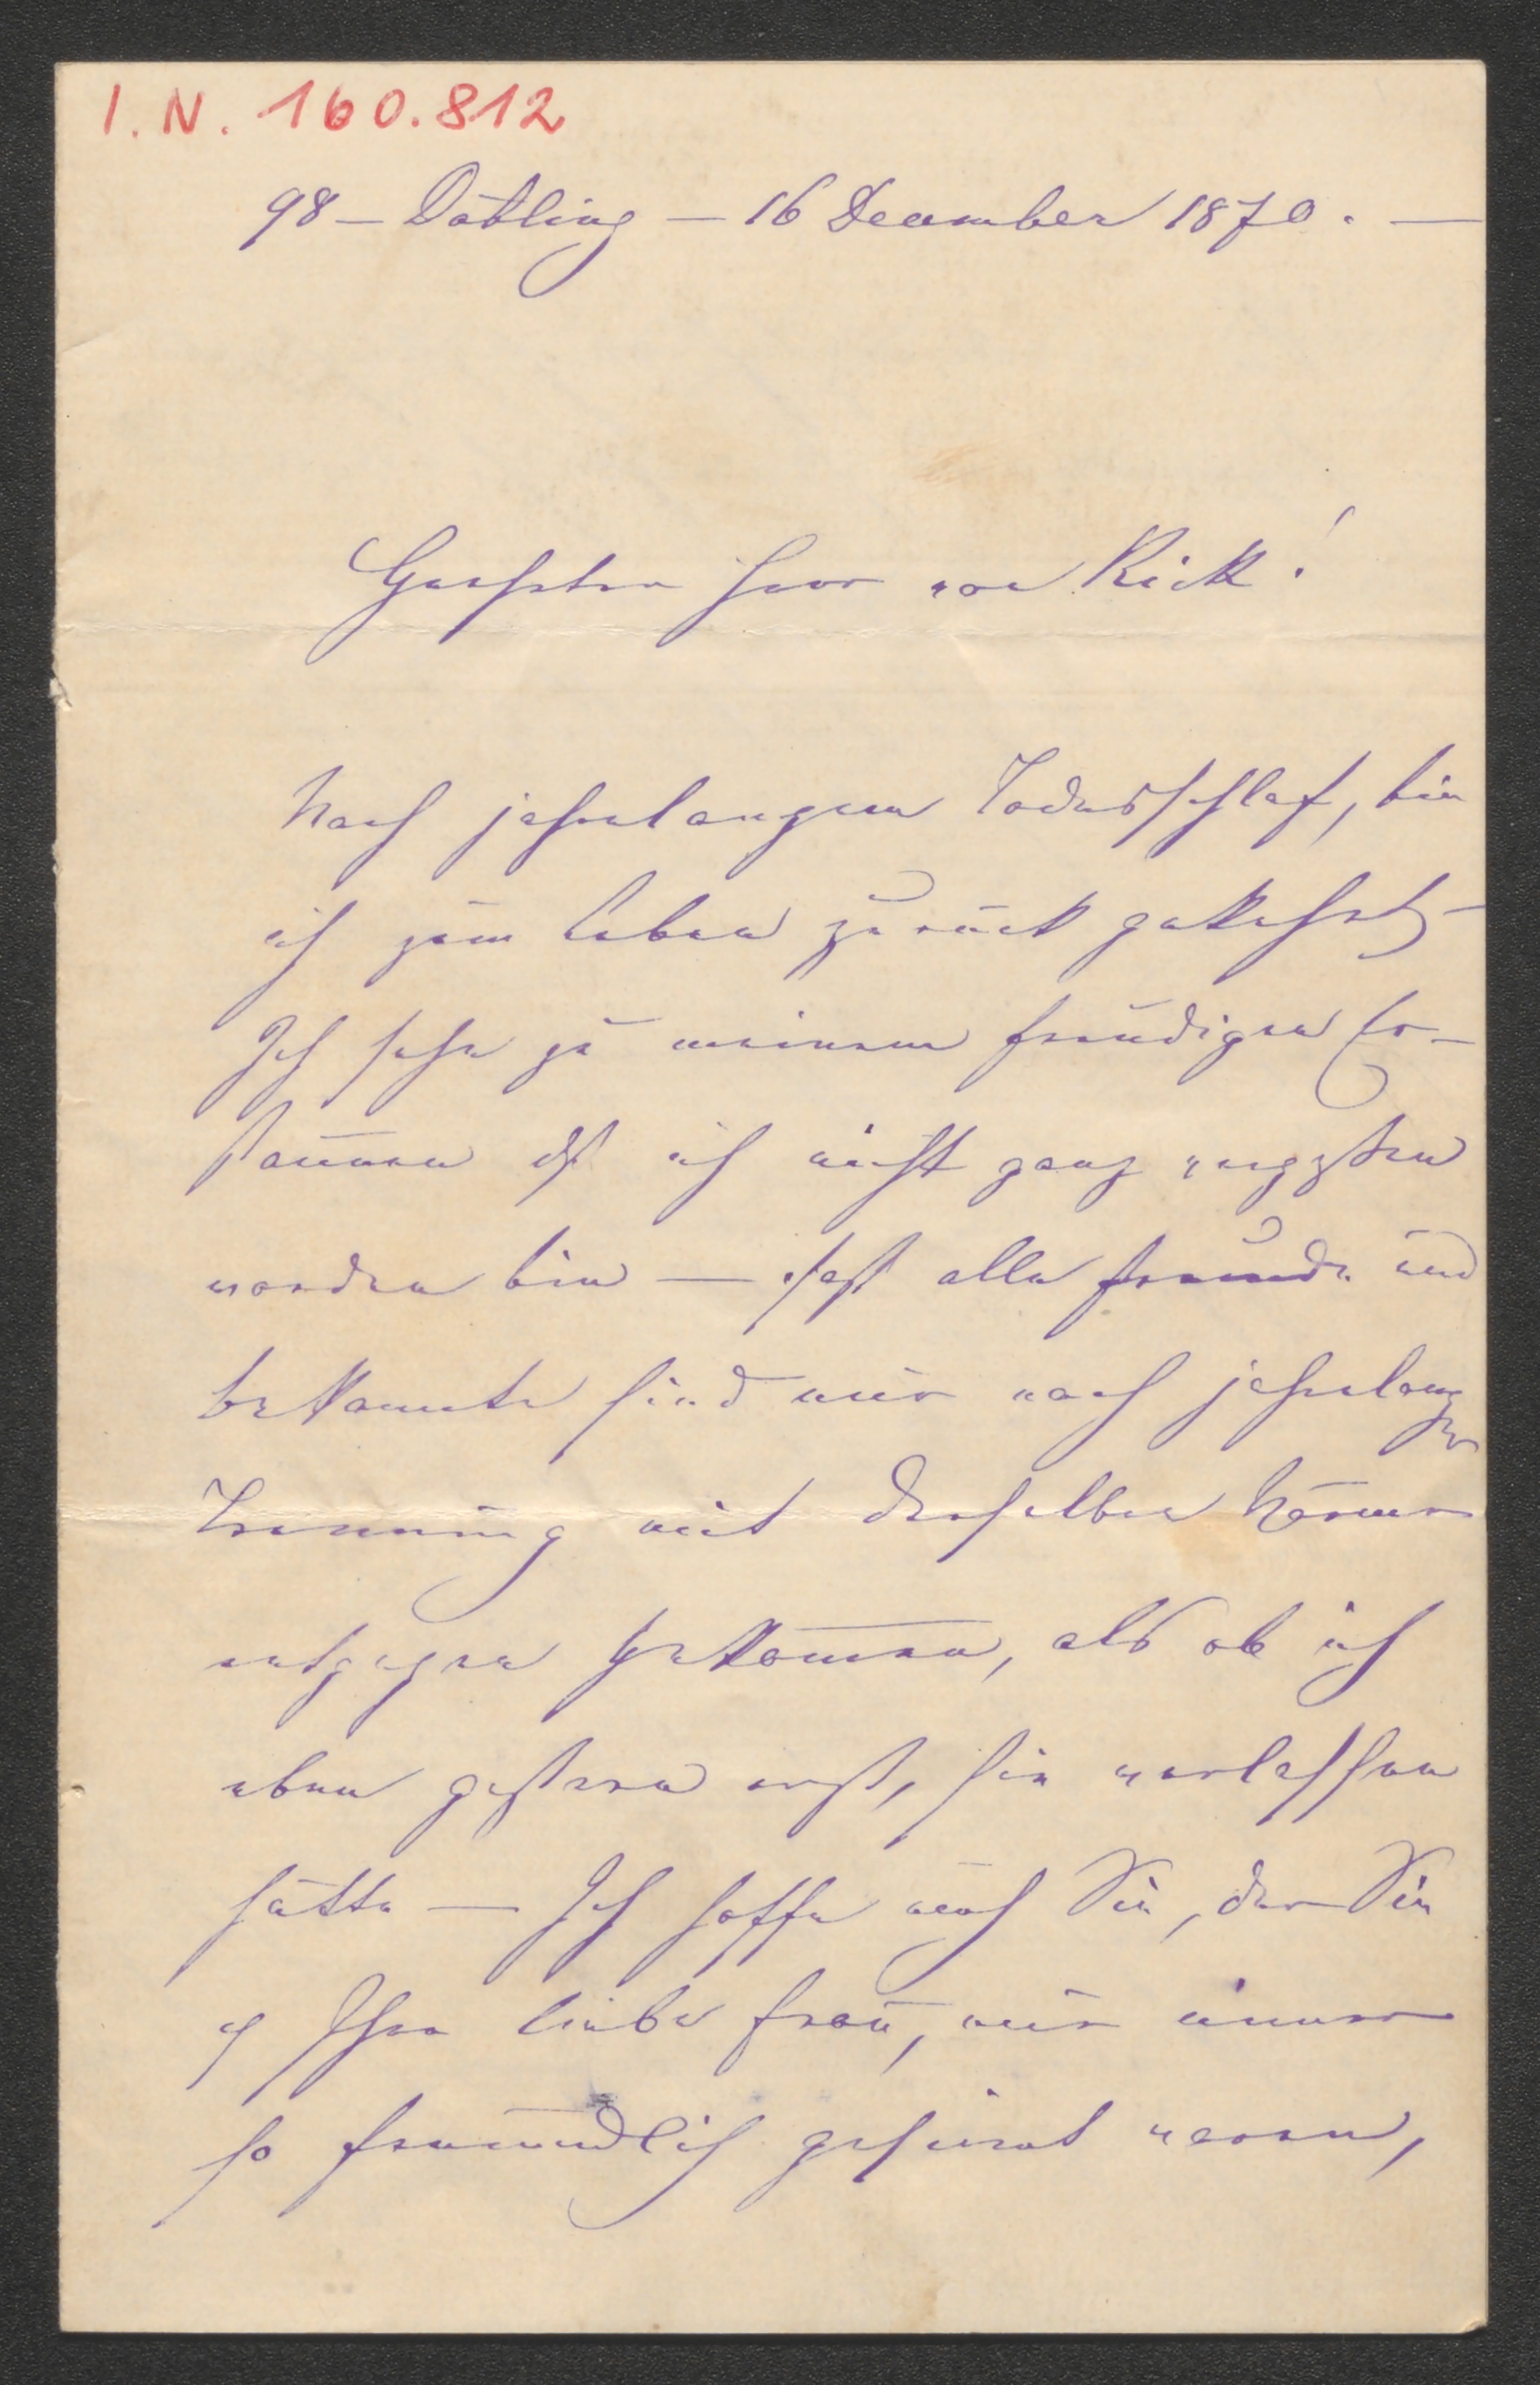 I. N. 160.812
98 – Döbling – 16 December 1870. –
Geehrter Herr von Kick!
Nach jahrelangem Todesschlaf, bin
ich zum Leben zurück gekehrt –
Ich sehe zu meinem freudigen Er-
staunen dß ich nicht ganz vergessen
worden bin — fast alle Freunde und
bekannte sind mir nach jahrelanger
Trennung mit derselben Wärme
entgegen gekommen, als ob ich
eben gestern erst, sie verlassen
hätte — Ich hoffe auch Sie, der Sie
u Ihre liebe Frau, mir immer
so freundlich gesinnt waren,